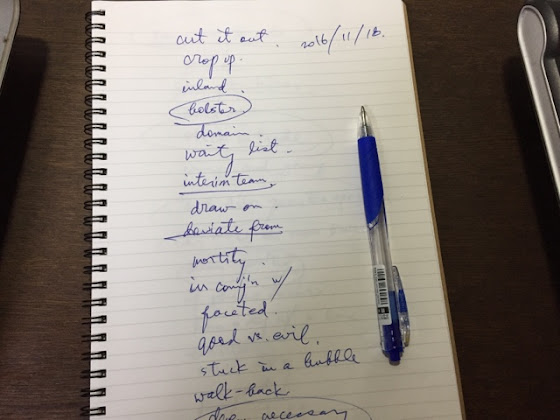 cut it out. 2016/11/18.
crop up.
inland.
bolster.
domain.
waity list.
interim team.
draw on.
deviate from
mortify.
in conj'n w/
faceted.
good vs. evil.
stuck in a bubble
walk-back
accessary